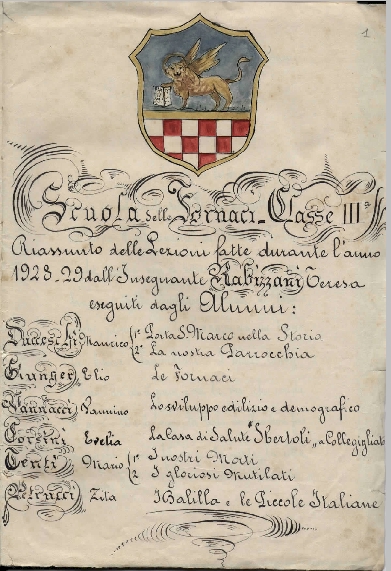 1
Scuola delle Fornaci - Classe IIIª
Riassunto delle Lezioni fatte durante l'anno
1928-29 dall'Insegnante Rabizzani Teresa
eseguiti dagli Alunni:
Maurico 1° Porta S. Marco nella Storia
2° La nostra Parrocchia
Elio Le Fornaci
Vannacci Vannino Lo sviluppo edilizio e demografico
Corsini Evelia La Casa di Salute "Sbertoli" a Collegigliato
Tenti Mario 1 I nostri Morti
2 I gloriosi Mutilati
Petrucci Zita I Balilla e le Piccole Italiane